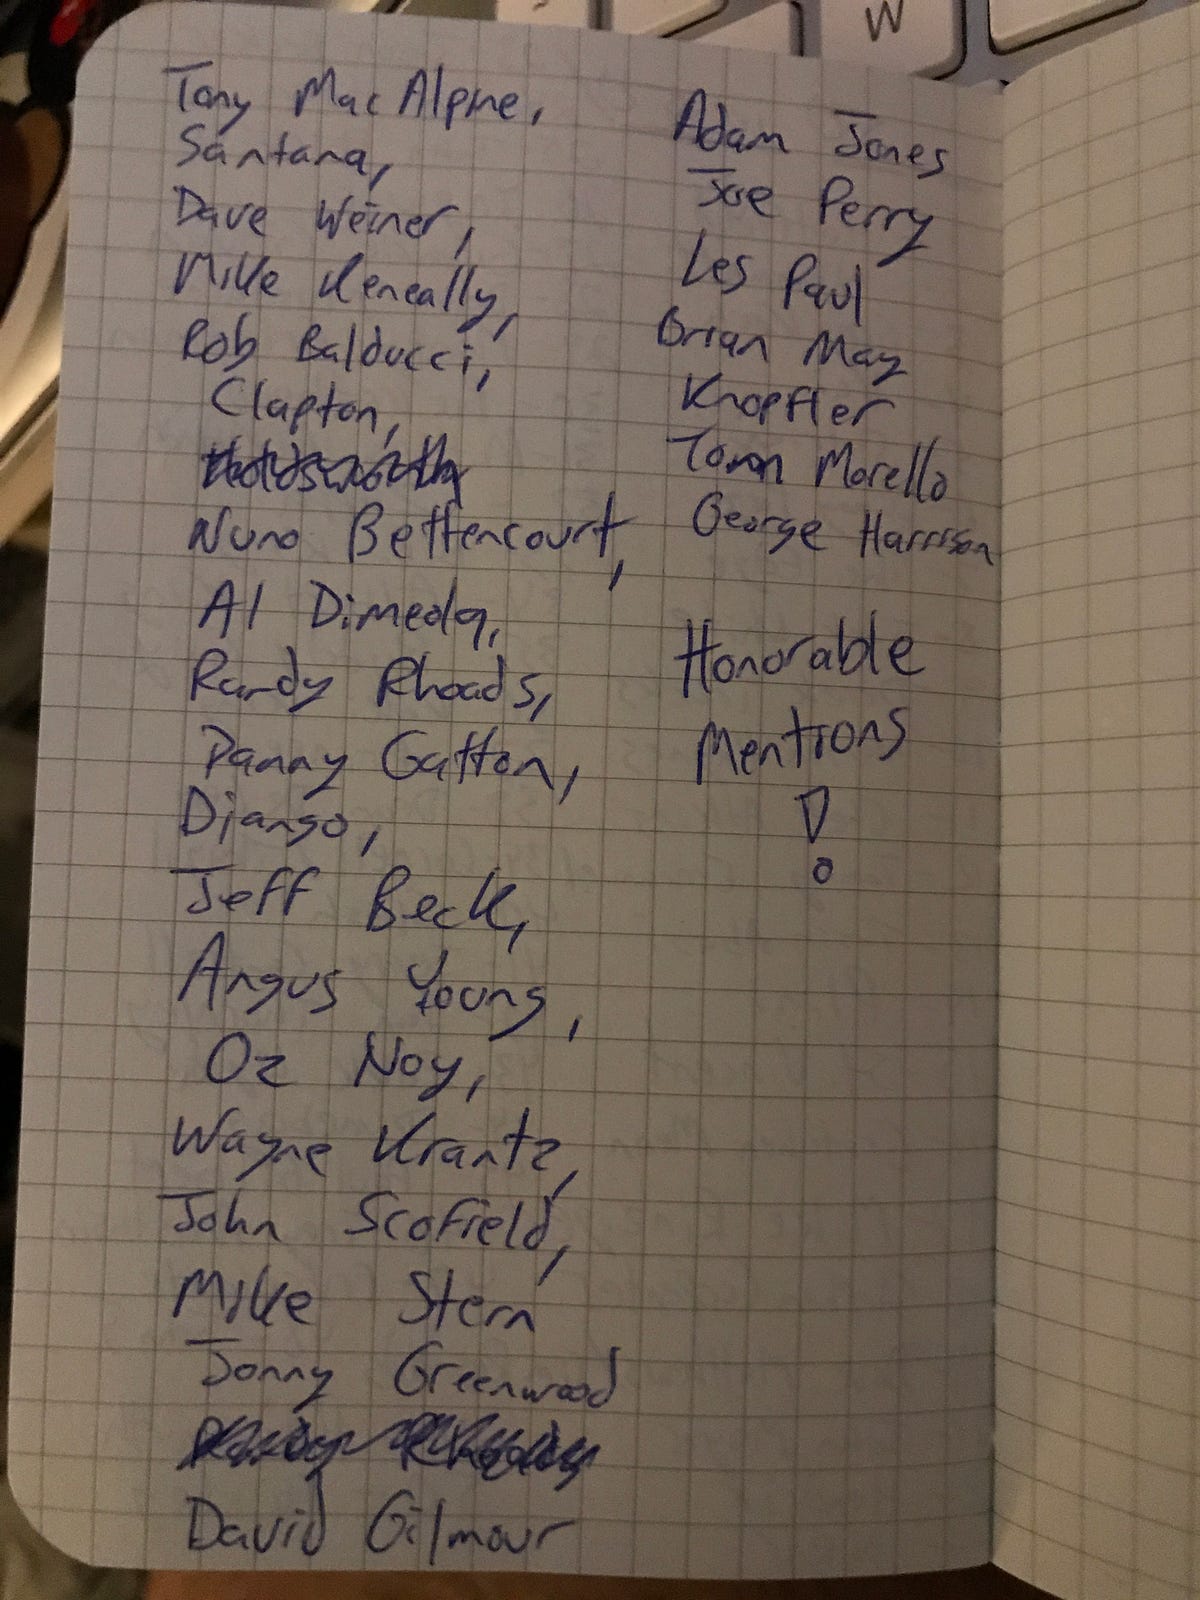 W
Tony MacAlpine,
Santana,
Dave Weiner,
Mike Keneally,
Rob Balducci,
Clapton,
Holdsworth
Nuno Bettencourt,
Al Dimeola,
Randy Rhoads,
Danny Gatton,
Django,
Jeff Beck,
Angus Young,
Oz Noy,
Wayne Krantz,
John Scofield,
Mike Stern
Jonny Greenwood
Randy Rhoads
David Gilmour
Adam Jones
Joe Perry
Les Paul
Brian May
Knopfler
Tom Morello
George Harrison
Honorable
Mentions
!